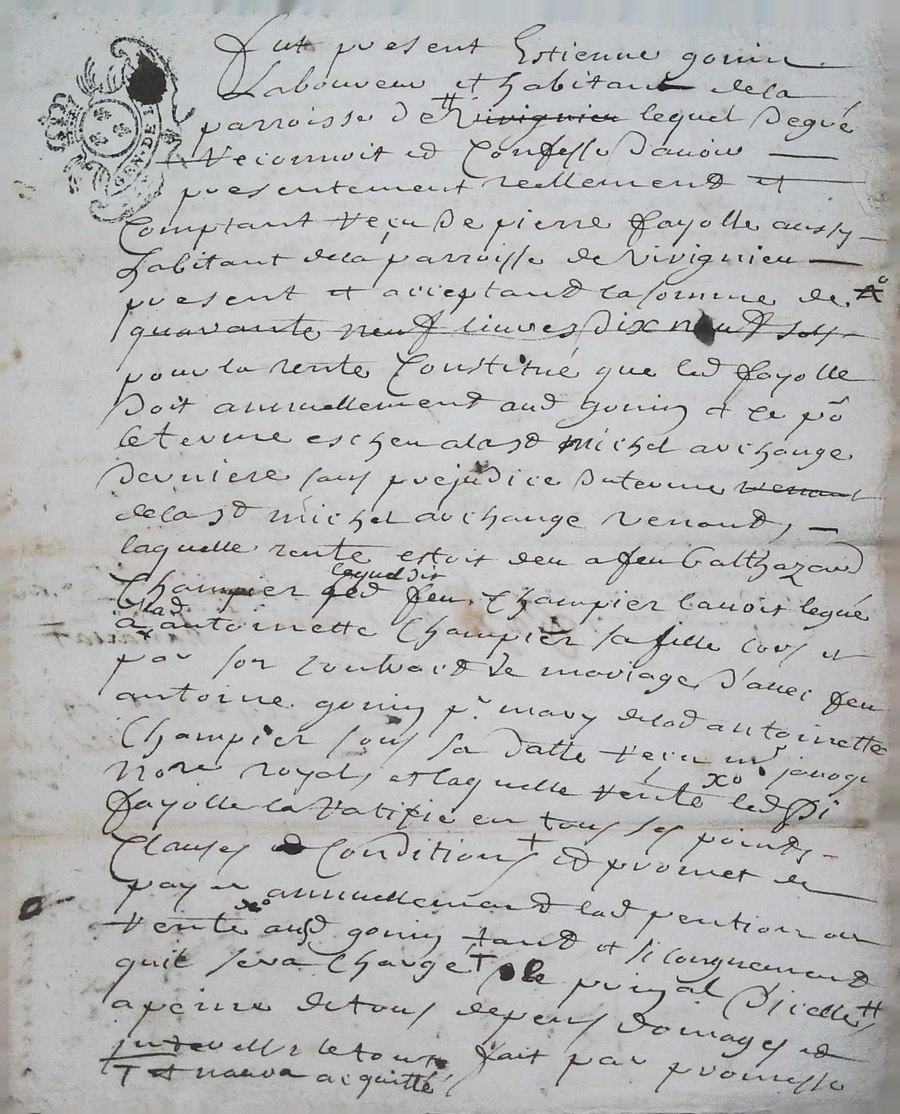 GEN·DE·L
fut present Estienne gonin
Laboureur et habitant de la
parroisse de tt Vivignieu lequel de gré
Reconnoit et Confesse d'avoir
presentement reellement et
Comptant reçu de pierre fayolle aussy
habitant de la parroisse de Vivignieu
present et acceptand la somme de
quarante neuf livres dix neuf sols
pour la rente Constitué que led fayolle
doit annuellement aud gonin et ce po
le terme escheu a la st michel archange
derniere sans prejudice du terme venant
de la st michel archange venand,
laquelle rente estoit deu a feu balthazard
lequel dit
Champier led feu Champier l'avoit legué
a lad
antoinette Champier sa fille lors et
par son contract de mariage d'avec feu
antoine gonin pr mary de lad antoinette
Champier sous sa datte reçu mr
nore royal, et laquelle rente led pi
xo
fayolle la Ratifie en tous ses points
Clauses et Conditions + et promet de
payer annuellement lad pention ou
xo
rente aud gonin tand et si longuemend
quil sera Charge T de prinpal d'icelle tt
a peine de tous depens domages et
interests le tout fait par promesse
T et naura acquitté